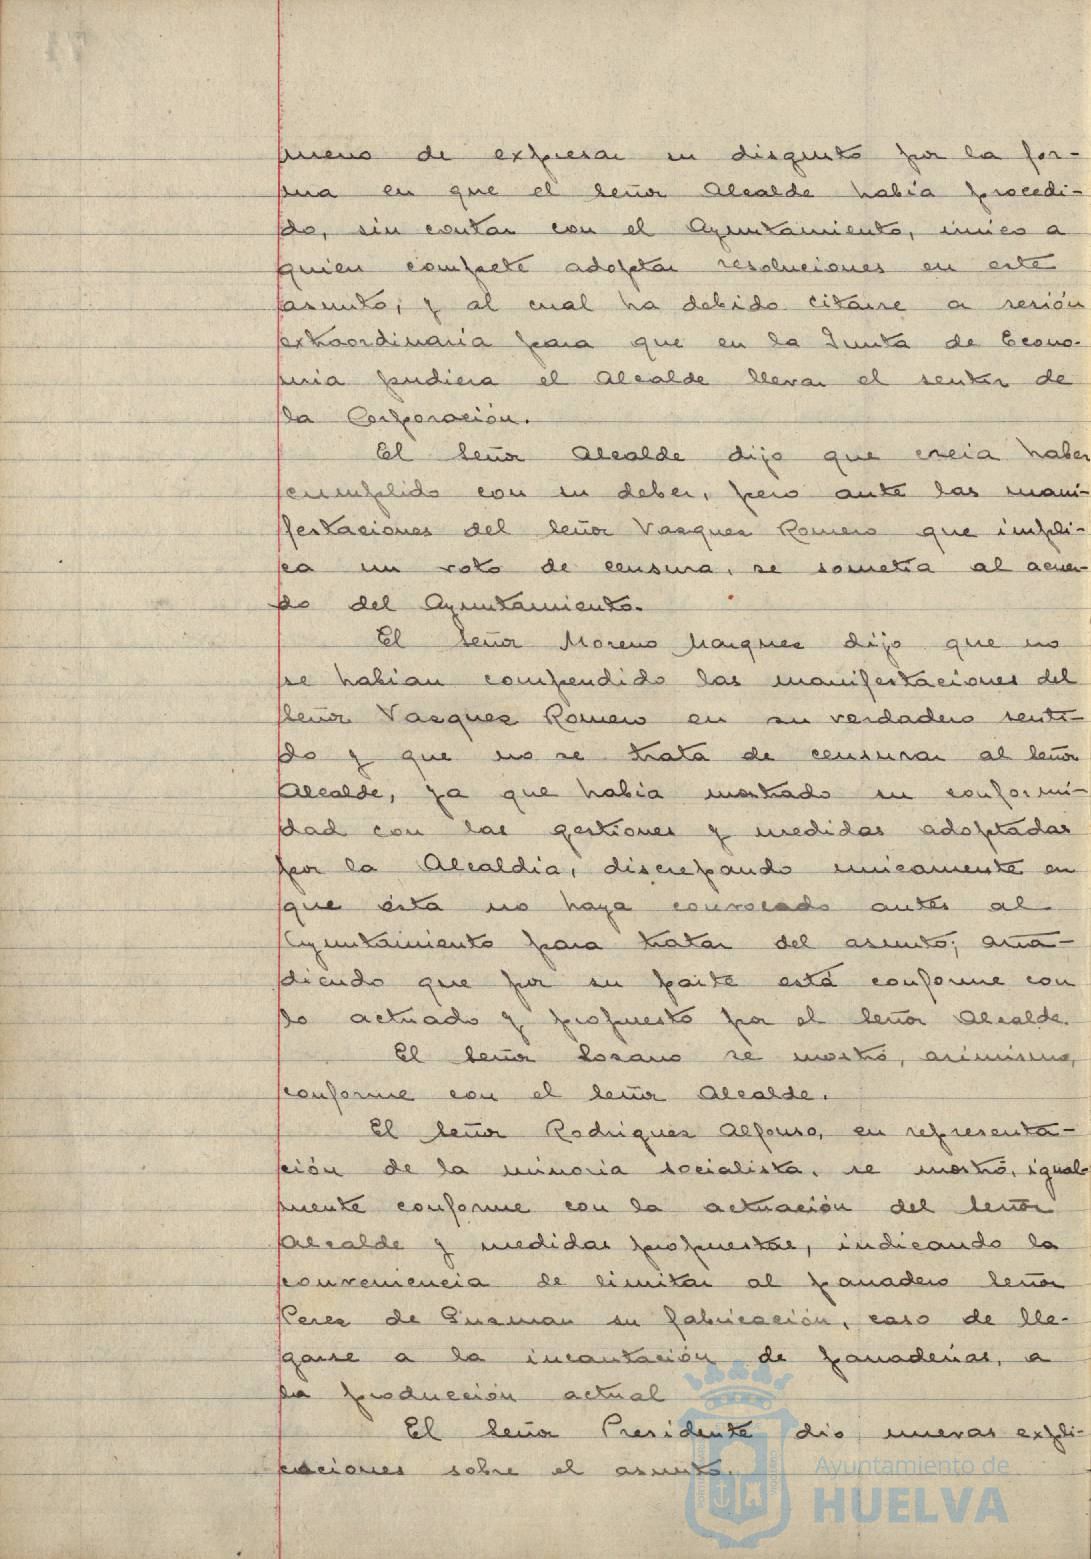 meno de expresar su disgusto por la for-
ma en que el Señor Alcalde había procedi-
do, sin contar con el Ayuntamiento, único a
quien compete adoptar resoluciones en este
asunto, y al cual ha debido citarse a sesión
extraordinaria para que en la Junta de Econo-
mia pudiera el Alcalde llevar el sentir de
la Corporación.
El Señor Alcalde dijo que creia haber
cumplido con su deber, pero ante las mani-
festaciones del Señor Vasquez Romero que impli-
ca un voto de censura, se sometía al acuer-
do del Ayuntamiento.
El Señor Moreno Marquez dijo que no
se habian compendido las manifestaciones del
Señor Vasquez Romero en su verdadero senti-
do y que no se trata de censurar al Señor
Alcalde, ya que había mostrado su conformi-
dad con las gestiones y medidas adoptadas
por la Alcaldia, discrepando unicamente en
que ésta no haya convocado antes al
Ayuntamiento para tratar del asunto; aña-
diendo que por su parte está conforme con
lo actuado y propuesto por el Señor Alcalde.
El Señor Lozano se mostró, asimismo,
conforme con el Señor Alcalde.
El Señor Rodriguez Alfonso, en representa-
ción de la minoria socialista, se mostró, igual-
mente conforme con la actuación del Señor
Alcalde y medidas propuestas, indicando la
conveniencia de limitar al panadero Señor
Perez de Guzman su fabricación, caso de lle-
garse a la incautación de panaderias, a
la producción actual
El Señor Presidente dio nuevas expli-
caciones sobre el asunto.
Ayuntamiento de
HUELVA